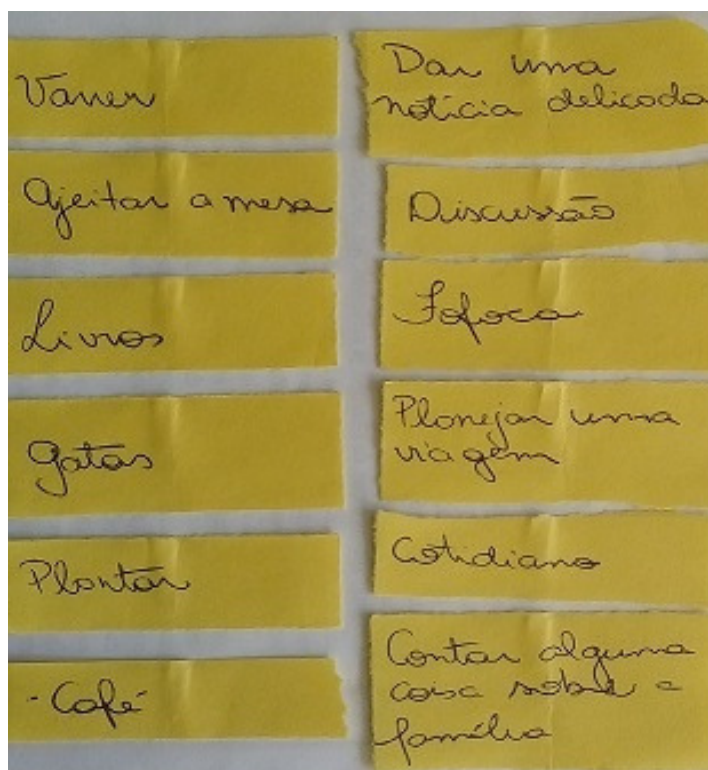 Varrer
Ajeitar a mesa
Livros
Gatas
Plantar
-Café-
Dar uma
notícia delicada
Discussão
Fofoca
Planejar uma
viagem
Cotidiano
Contar alguma
coisa sobre a
família